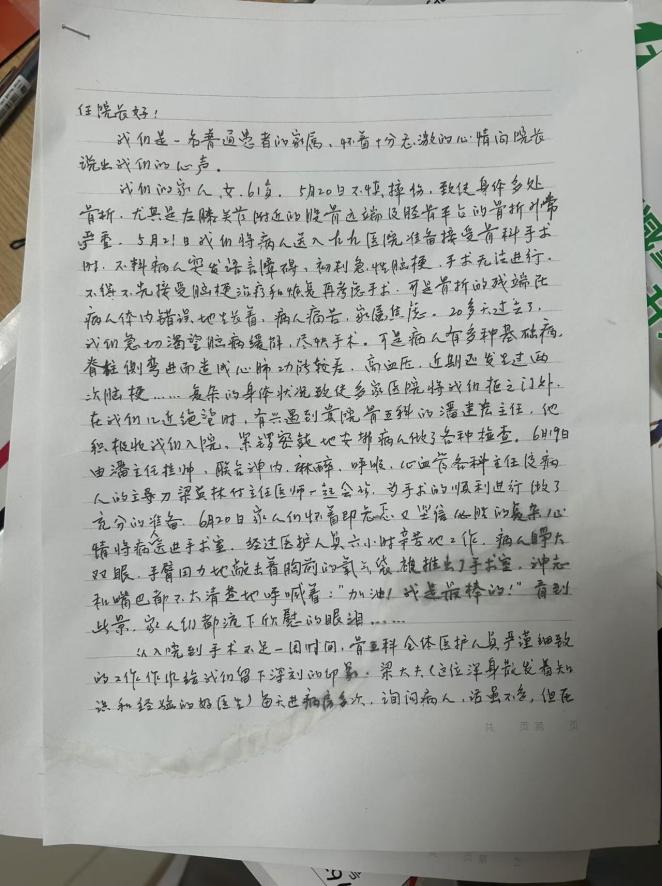 任院长好！
我们是一名普通患者的家属，怀着十分感激的心情向院长
说出我们的心声。
我们的家人，女，61岁，5月20日不慎摔伤，致使身体多处
骨折，尤其是左膝关节附近的股骨远端及胫骨平台的骨折非常
严重。5月21日我们将病人送入九九医院准备接受骨科手术
时，不料病人突发语言障碍，初判急性脑梗，手术无法进行。
不得不先接受脑梗治疗和恢复再考虑手术，可是骨折的残端在
病人体内错误地生长着，病人痛苦，家属焦虑。20多天过去了，
我们急切渴望脑病缓解，尽快手术。可是病人有多种基础病，
脊柱侧弯进而造成心肺功能较差，高血压，近期还发生过两
次脑梗……复杂的身体状况致使多家医院将我们拒之门外。
在我们几近绝望时，有兴遇到贵院骨五科的潘建宏主任，他
积极收我们入院，紧锣密鼓地安排病人做了各种检查。6月19日
由潘主任挂帅，联合神内，麻醉，呼吸，心血管各科主任及病
人的主导刀梁英林竹主任医师一起会诊，为手术的顺利进行做了
充分的准备。6月20日家人们怀着即忐忑又坚信必胜的复杂心
情将病送进手术室，经过医护人员六小时辛苦地工作，病人睁大
双眼，手臂用力地敲击着胸前的氧气袋被推出了手术室，神志
和嘴巴都不大清楚地呼喊着："加油！我是最棒的！"看到
此景，家人们都流下欣慰的眼泪……
从入院到手术不足一周时间，骨五科全体医护人员严谨细致
的工作作风给我们留下深刻的印象。梁大夫（这位浑身散发着知
识和经验的好医生）每天进病房多次，询问病人，话虽不多，但在
共 页第 页